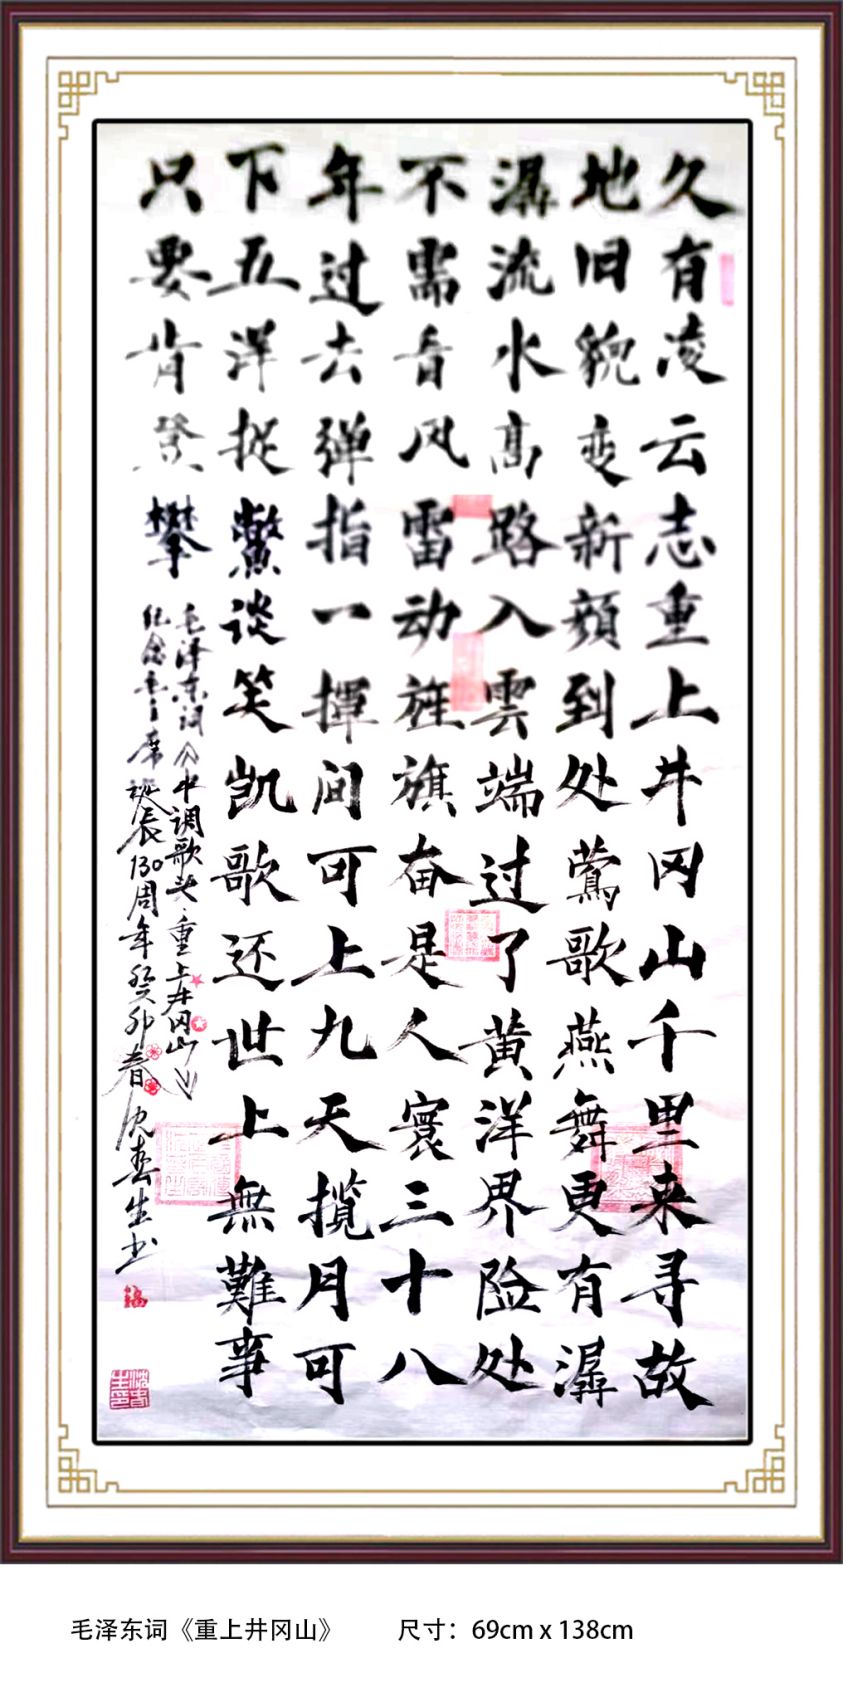 久有凌云志重上井冈山千里来寻故
地旧貌变新颜到处莺歌燕舞更有潺
潺流水高路入雲端过了黄洋界险处
不需看风雷动旌旗奋是人寰三十八
年过去弹指一揮间可上九天揽月可
下五洋捉鱉谈笑凯歌还世上無難事
只要肯登攀
毛泽东词《水调歌头·重上井冈山》
纪念毛主席诞辰130周年癸卯春沈春生书
福
毛泽东词《重上井冈山》 尺寸：69cm x 138cm